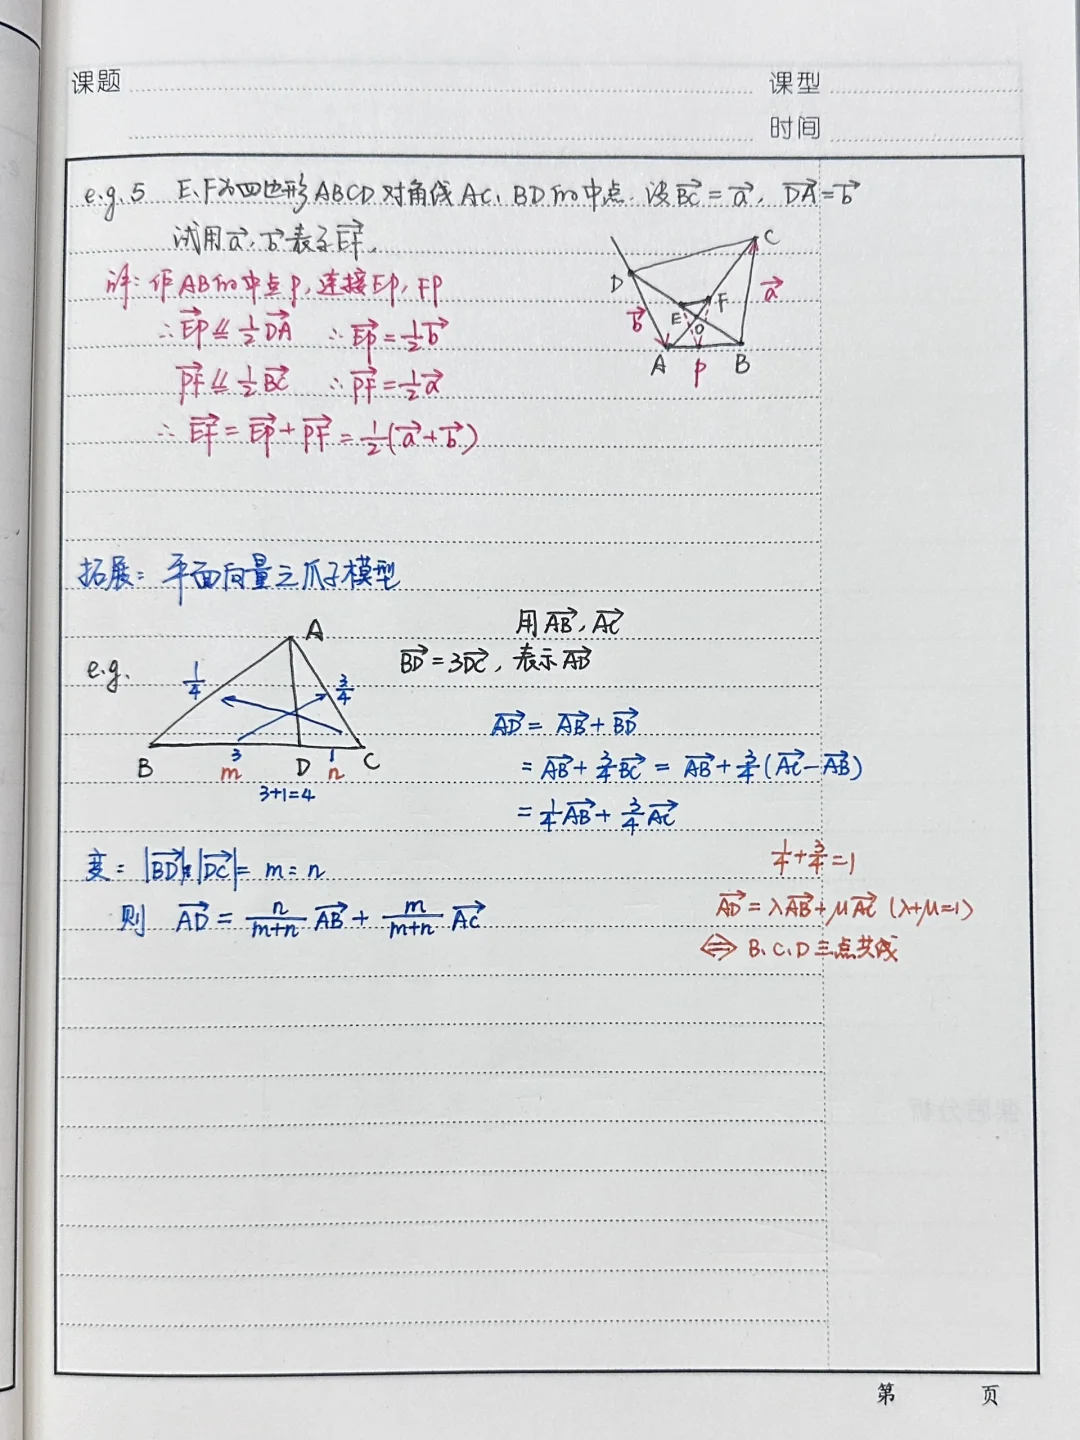 课题 课型
时间
e.g.5 E、F为四边形ABCD对角线AC、BD的中点.设$\overrightarrow{BC}=\vec{a}$, $\overrightarrow{DA}=\vec{b}$
试用$\vec{a}$、$\vec{b}$表示$\overrightarrow{EF}$.
详:作AB的中点P,连接EP,FP
∴$\overrightarrow{EP}$⫽$\frac{1}{2}\overrightarrow{DA}$ ∴$\overrightarrow{EP}=\frac{1}{2}\vec{b}$
$\overrightarrow{PF}$⫽$\frac{1}{2}\overrightarrow{BC}$ ∴$\overrightarrow{PF}=\frac{1}{2}\vec{a}$
∴$\overrightarrow{EF}=\overrightarrow{EP}+\overrightarrow{PF}=\frac{1}{2}(\vec{a}+\vec{b})$
C
D
F
$\vec{a}$
$\vec{b}$
E
O
A P B
拓展:平面向量之爪子模型
e.g.
A
$\frac{1}{4}$ $\frac{3}{4}$
3 1
B m D n C
3+1=4
用$\overrightarrow{AB}$,$\overrightarrow{AC}$
$\overrightarrow{BD}=3\overrightarrow{DC}$,表示$\overrightarrow{AD}$
$\overrightarrow{AD}=\overrightarrow{AB}+\overrightarrow{BD}$
$=\overrightarrow{AB}+\frac{3}{4}\overrightarrow{BC}=\overrightarrow{AB}+\frac{3}{4}(\overrightarrow{AC}-\overrightarrow{AB})$
$=\frac{1}{4}\overrightarrow{AB}+\frac{3}{4}\overrightarrow{AC}$
变:$|\overrightarrow{BD}|:|\overrightarrow{DC}|=m:n$
则 $\overrightarrow{AD}=\frac{n}{m+n}\overrightarrow{AB}+\frac{m}{m+n}\overrightarrow{AC}$
$\frac{1}{4}+\frac{3}{4}=1$
$\overrightarrow{AD}=λ\overrightarrow{AB}+μ\overrightarrow{AC}$ (λ+μ=1)
⇔ B、C、D三点共线
第 页